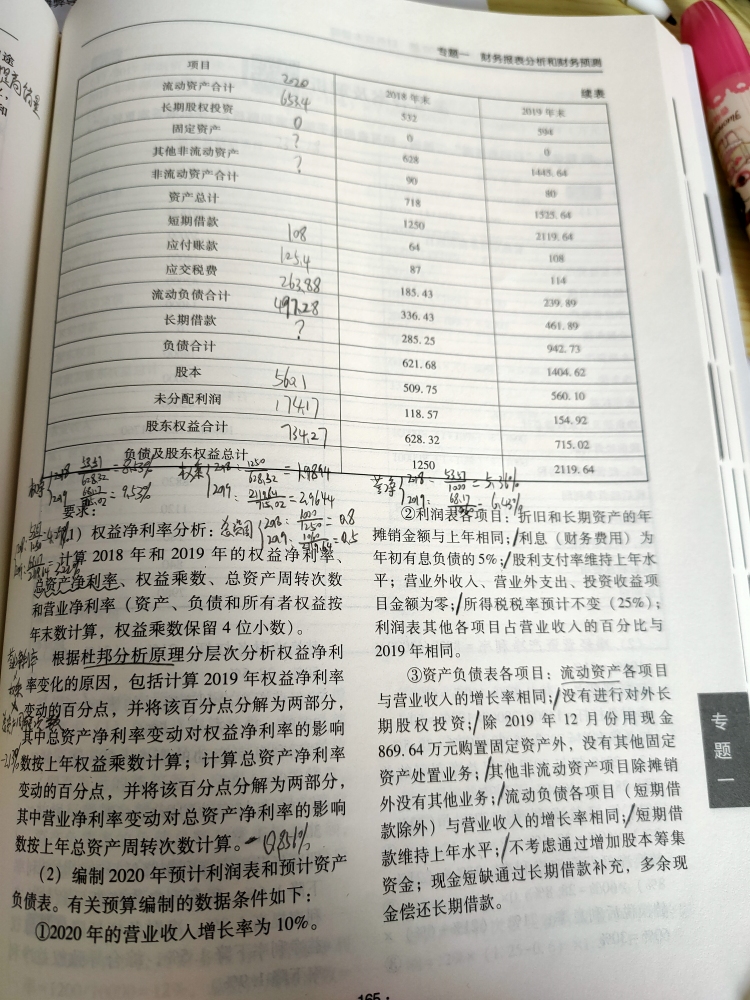 专题一 财务报表分析和财务预测
续表
项目 2020 2018 年末 2019 年末
流动资产合计 653.4 532 594
长期股权投资 0 0 0
固定资产 ? 628 1445.64
其他非流动资产 ? 90 80
非流动资产合计 718 1525.64
资产总计 1250 2119.64
短期借款 108 64 108
应付账款 125.4 87 114
应交税费 263.88 185.43 239.89
流动负债合计 497.28 336.43 461.89
长期借款 ? 285.25 942.73
负债合计 621.68 1404.62
股本 560.1 509.75 560.10
未分配利润 174.17 118.57 154.92
股东权益合计 734.27 628.32 715.02
负债及股东权益总计 1250 2119.64
2018: 53.57/628.32 = 8.53%
2019: 68.17/715.02 = 9.53%
权乘 2018: 1250/628.32 = 1.9894
2019: 2119.64/715.02 = 2.9644
营净 2018: 53.57/1000 = 5.36%
2019: 68.17/1060 = 6.43%
总资周 2018: 1000/1250 = 0.8
2019: 1060/2119.64 = 0.5
要求：
(1) 权益净利率分析：
计算 2018 年和 2019 年的权益净利率、
总资产净利率、权益乘数、总资产周转次数
和营业净利率（资产、负债和所有者权益按
年末数计算，权益乘数保留 4 位小数）。
根据杜邦分析原理分层次分析权益净利
率变化的原因，包括计算 2019 年权益净利率
变动的百分点，并将该百分点分解为两部分，
其中总资产净利率变动对权益净利率的影响
数按上年权益乘数计算；计算总资产净利率
变动的百分点，并将该百分点分解为两部分，
其中营业净利率变动对总资产净利率的影响
数按上年总资产周转次数计算。
(2) 编制 2020 年预计利润表和预计资产
负债表。有关预算编制的数据条件如下：
①2020 年的营业收入增长率为 10%。
②利润表各项目：折旧和长期资产的年
摊销金额与上年相同；利息（财务费用）为
年初有息负债的 5%；股利支付率维持上年水
平；营业外收入、营业外支出、投资收益项
目金额为零；所得税税率预计不变（25%）；
利润表其他各项目占营业收入的百分比与
2019 年相同。
③资产负债表各项目：流动资产各项目
与营业收入的增长率相同；没有进行对外长
期股权投资；除 2019 年 12 月份用现金
869.64 万元购置固定资产外，没有其他固定
资产处置业务；其他非流动资产项目除摊销
外没有其他业务；流动负债各项目（短期借
款除外）与营业收入的增长率相同；短期借
款维持上年水平；不考虑通过增加股本筹集
资金；现金短缺通过长期借款补充，多余现
金偿还长期借款。
专题一
165